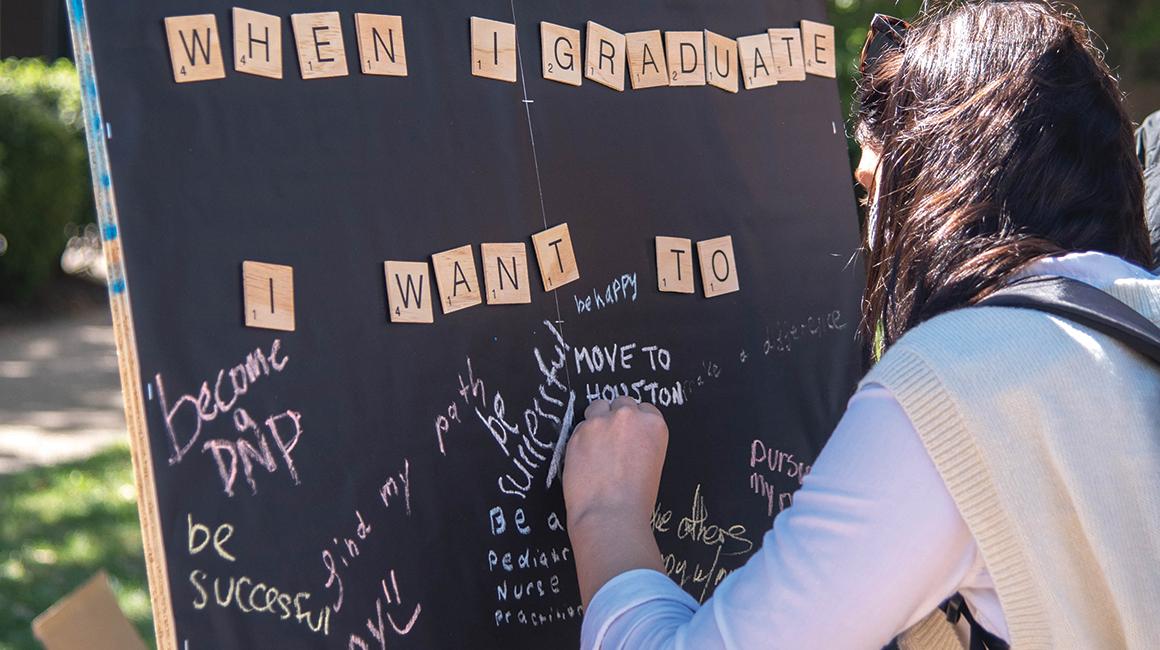 WHEN I GRADUATE
I WANT TO
be happy
become
a
DNP
path
be
successful
MOVE TO
HOUSTON
make a difference
be
successful
find my
Be a
Nurse
others
my